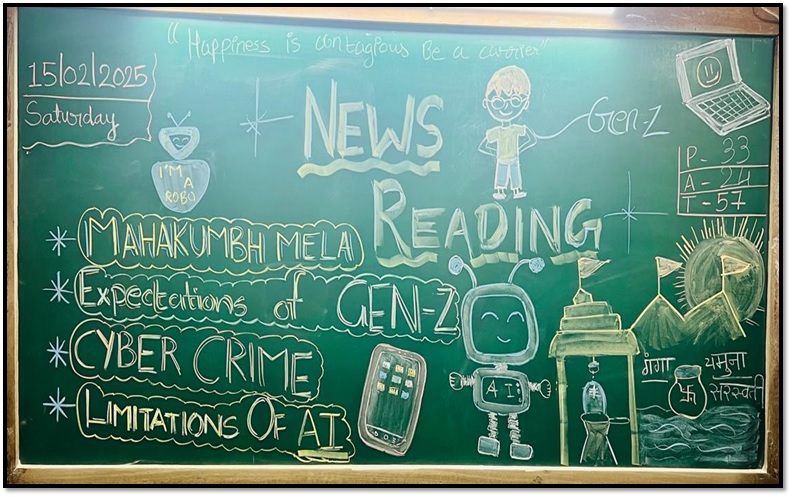 "Happiness is contagious Be a carrier"
15/02/2025
Saturday
NEWS
READING
Gen-Z
P - 33
A - 24
T - 57
I'M
A
ROBO
* MAHAKUMBH MELA
* Expectations of GEN-Z
* CYBER CRIME
* LIMITATIONS OF AI
AI
गंगा यमुना
सरस्वती